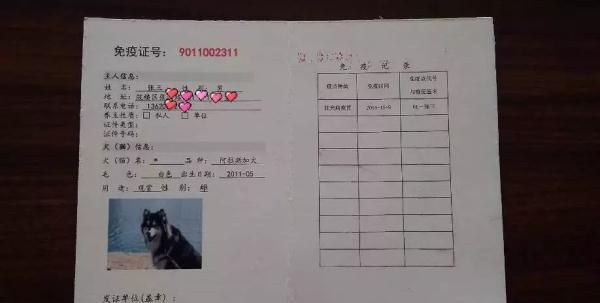 免疫证号：9011002311
主人信息：
姓 名：张三 性 别：男
地 址：鼓楼区
联系电话：13620
养主性质：□ 私人 □ 单位
证件类型：
证件号码：
犬（猫）信息：
犬（猫）名：* 品 种：阿拉斯加犬
毛 色：白色 出生日期：2011-05
用 途：观赏 性 别：雄
发证单位(盖章)：
免 疫 记 录
疫苗种类 免疫时间 免疫点代号
与免疫签术
狂犬病疫苗